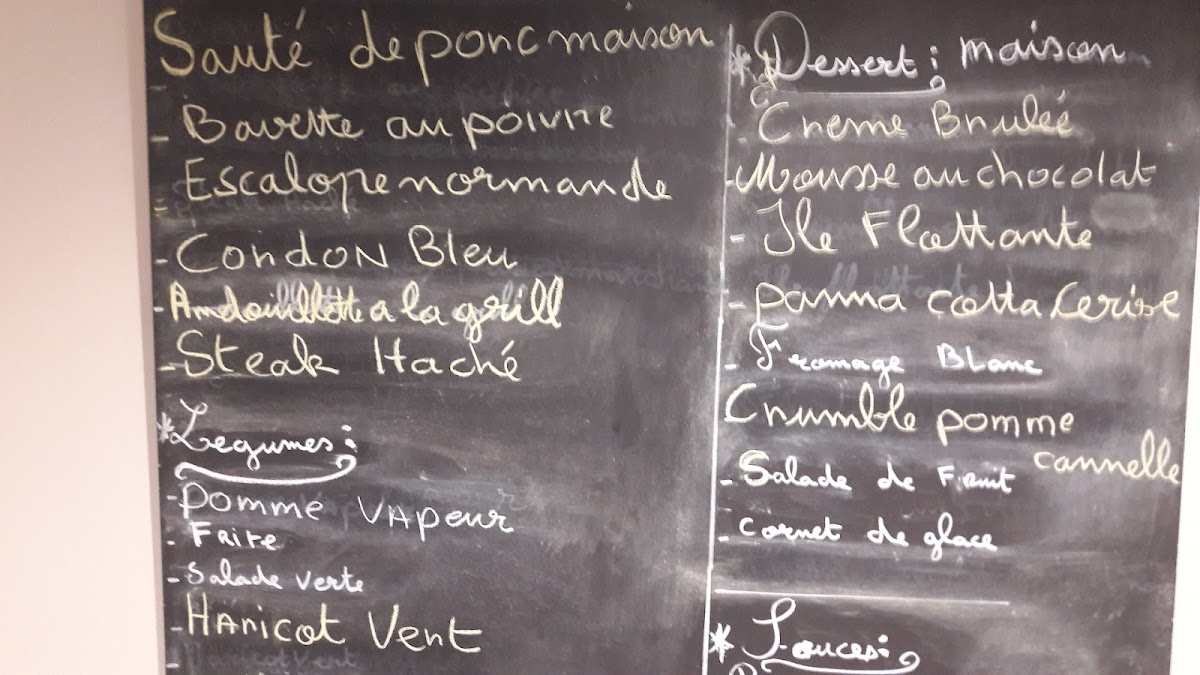 Sauté de porc maison
- Bavette au poivre
- Escalope normande
- Cordon Bleu
- Andouillette a la grill
- Steak Haché
* Legumes :
- pomme vapeur
- Frite
- Salade verte
- Haricot Vert
* Dessert : maison
- Creme Brulée
- Mousse au chocolat
- Ile Flottante
- panna cotta Cerise
- Fromage Blanc
Crumble pomme
cannelle
- Salade de Fruit
- Cornet de glace
* Sauces :